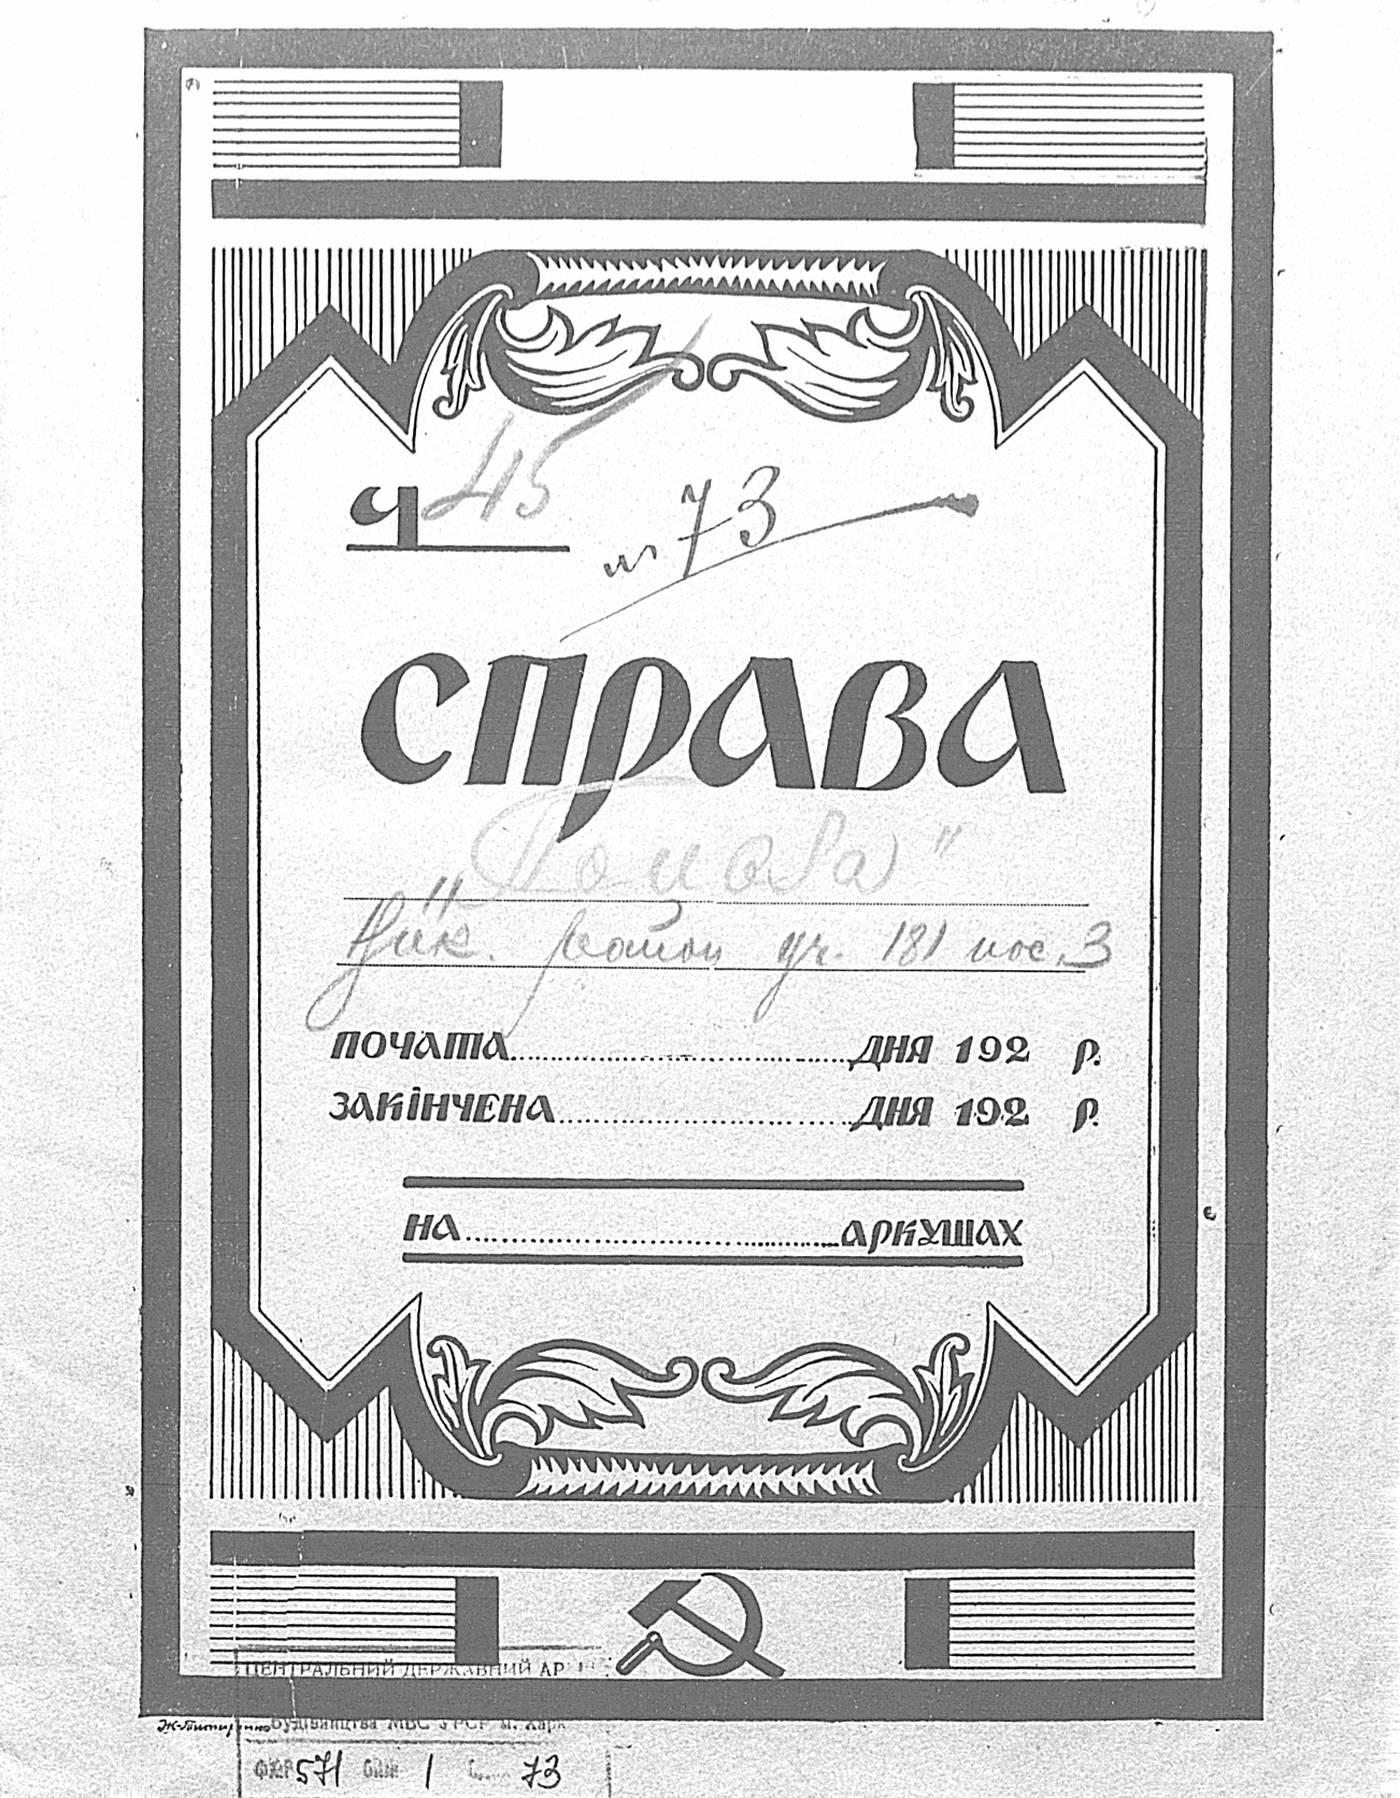 Ч 45
73
СПРАВА
район уч. 181 пос. 3
ПОЧАТА ДНЯ 192 р.
ЗАКІНЧЕНА ДНЯ 192 р.
НА АРКУШАХ
ЦЕНТРАЛЬНИЙ ДЕРЖАВНИЙ АР
будівництва МВС УРСР м. Харк
571 1 73